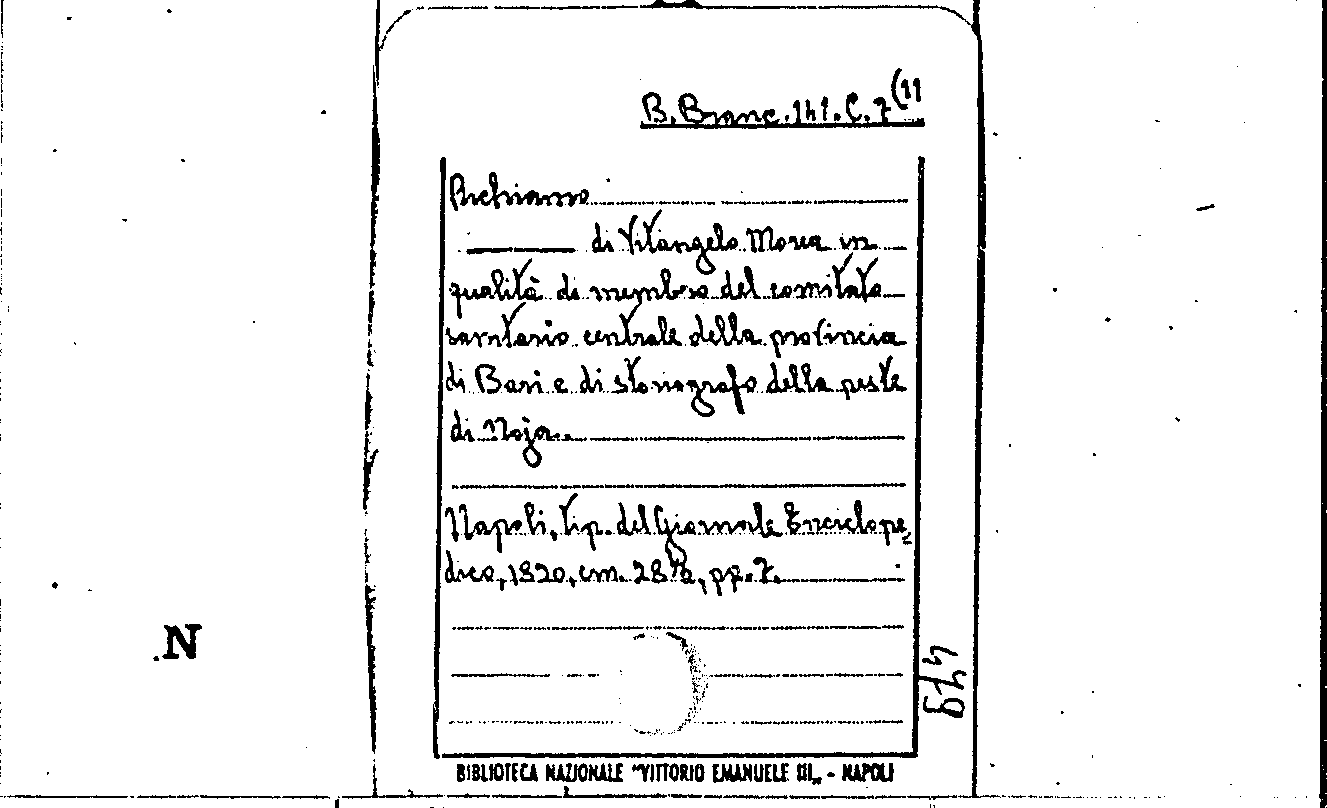 B. Branc. 141. C. 7 (11
Richiamo
di Vitangelo Morea in
qualità di membro del comitato
sanitario centrale della provincia
di Bari e di storiografo della peste
di Noja.
Napoli, tip. del Giornale Enciclope
dico, 1820, cm. 28½, pp. 7.
479
N
BIBLIOTECA NAZIONALE "VITTORIO EMANUELE III„ - NAPOLI